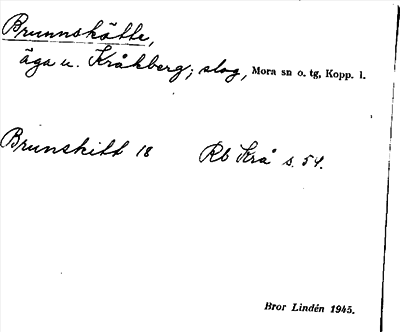 Brunnskötte,
äga u. Kråkberg; slog, Mora sn o. tg, Kopp. l.
Brunskitt 18 Rb Krå s. 54.
Bror Lindén 1945.